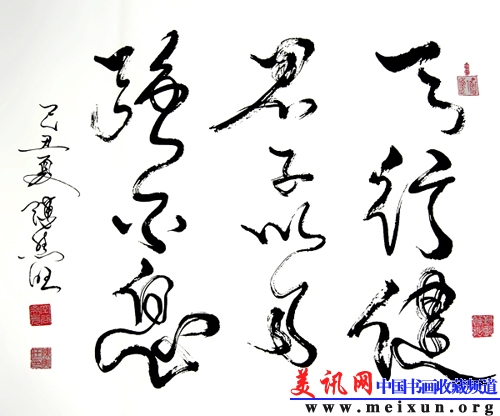 天行健
君子以自
强不息
己丑夏
美讯网 中国书画收藏频道
www.meixun.org